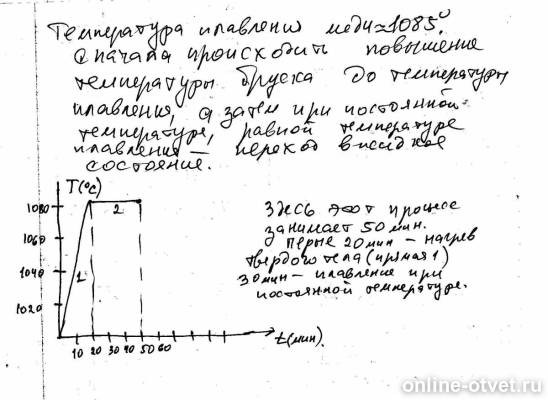 Температура плавления меди ≈ 1085°.
Сначала происходить повышение
температуры бруска до температуры
плавления, а затем при постоянной
температуре, равной температуре
плавления — переход в жидкое
состояние.
T(°c)
1080
1060
1040
1020
1
2
10 20 30 40 50 60
t(мин).
Здесь этот процесс
занимает 50 мин.
Перые 20 мин – нагрев
твердого тела (прямая 1)
30 мин – плавление при
постоянной температуре.
online-otvet.ru